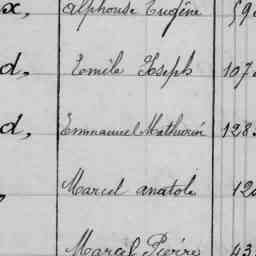 x, Alphonse Eugène 59
d, Emile Joseph 107
d, Emmanuel Mathurin 128
Marcel Anatole 12
Marcel Pierre 43